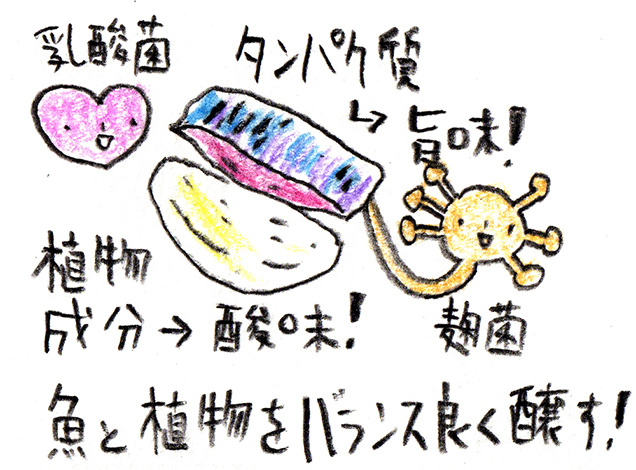 乳酸菌
タンパク質
↳旨味!
植物
成分→酸味!
麹菌
魚と植物をバランス良く醸す!